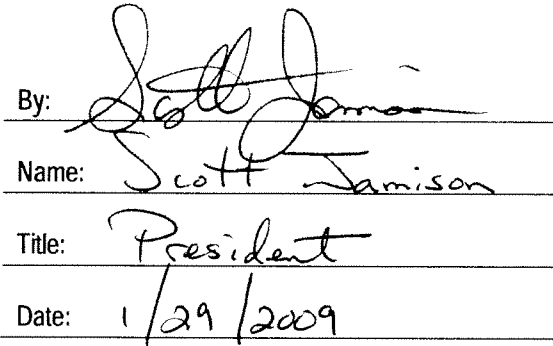 By: Scott Jamison
Name: Scott Jamison
Title: President
Date: 1/29/2009